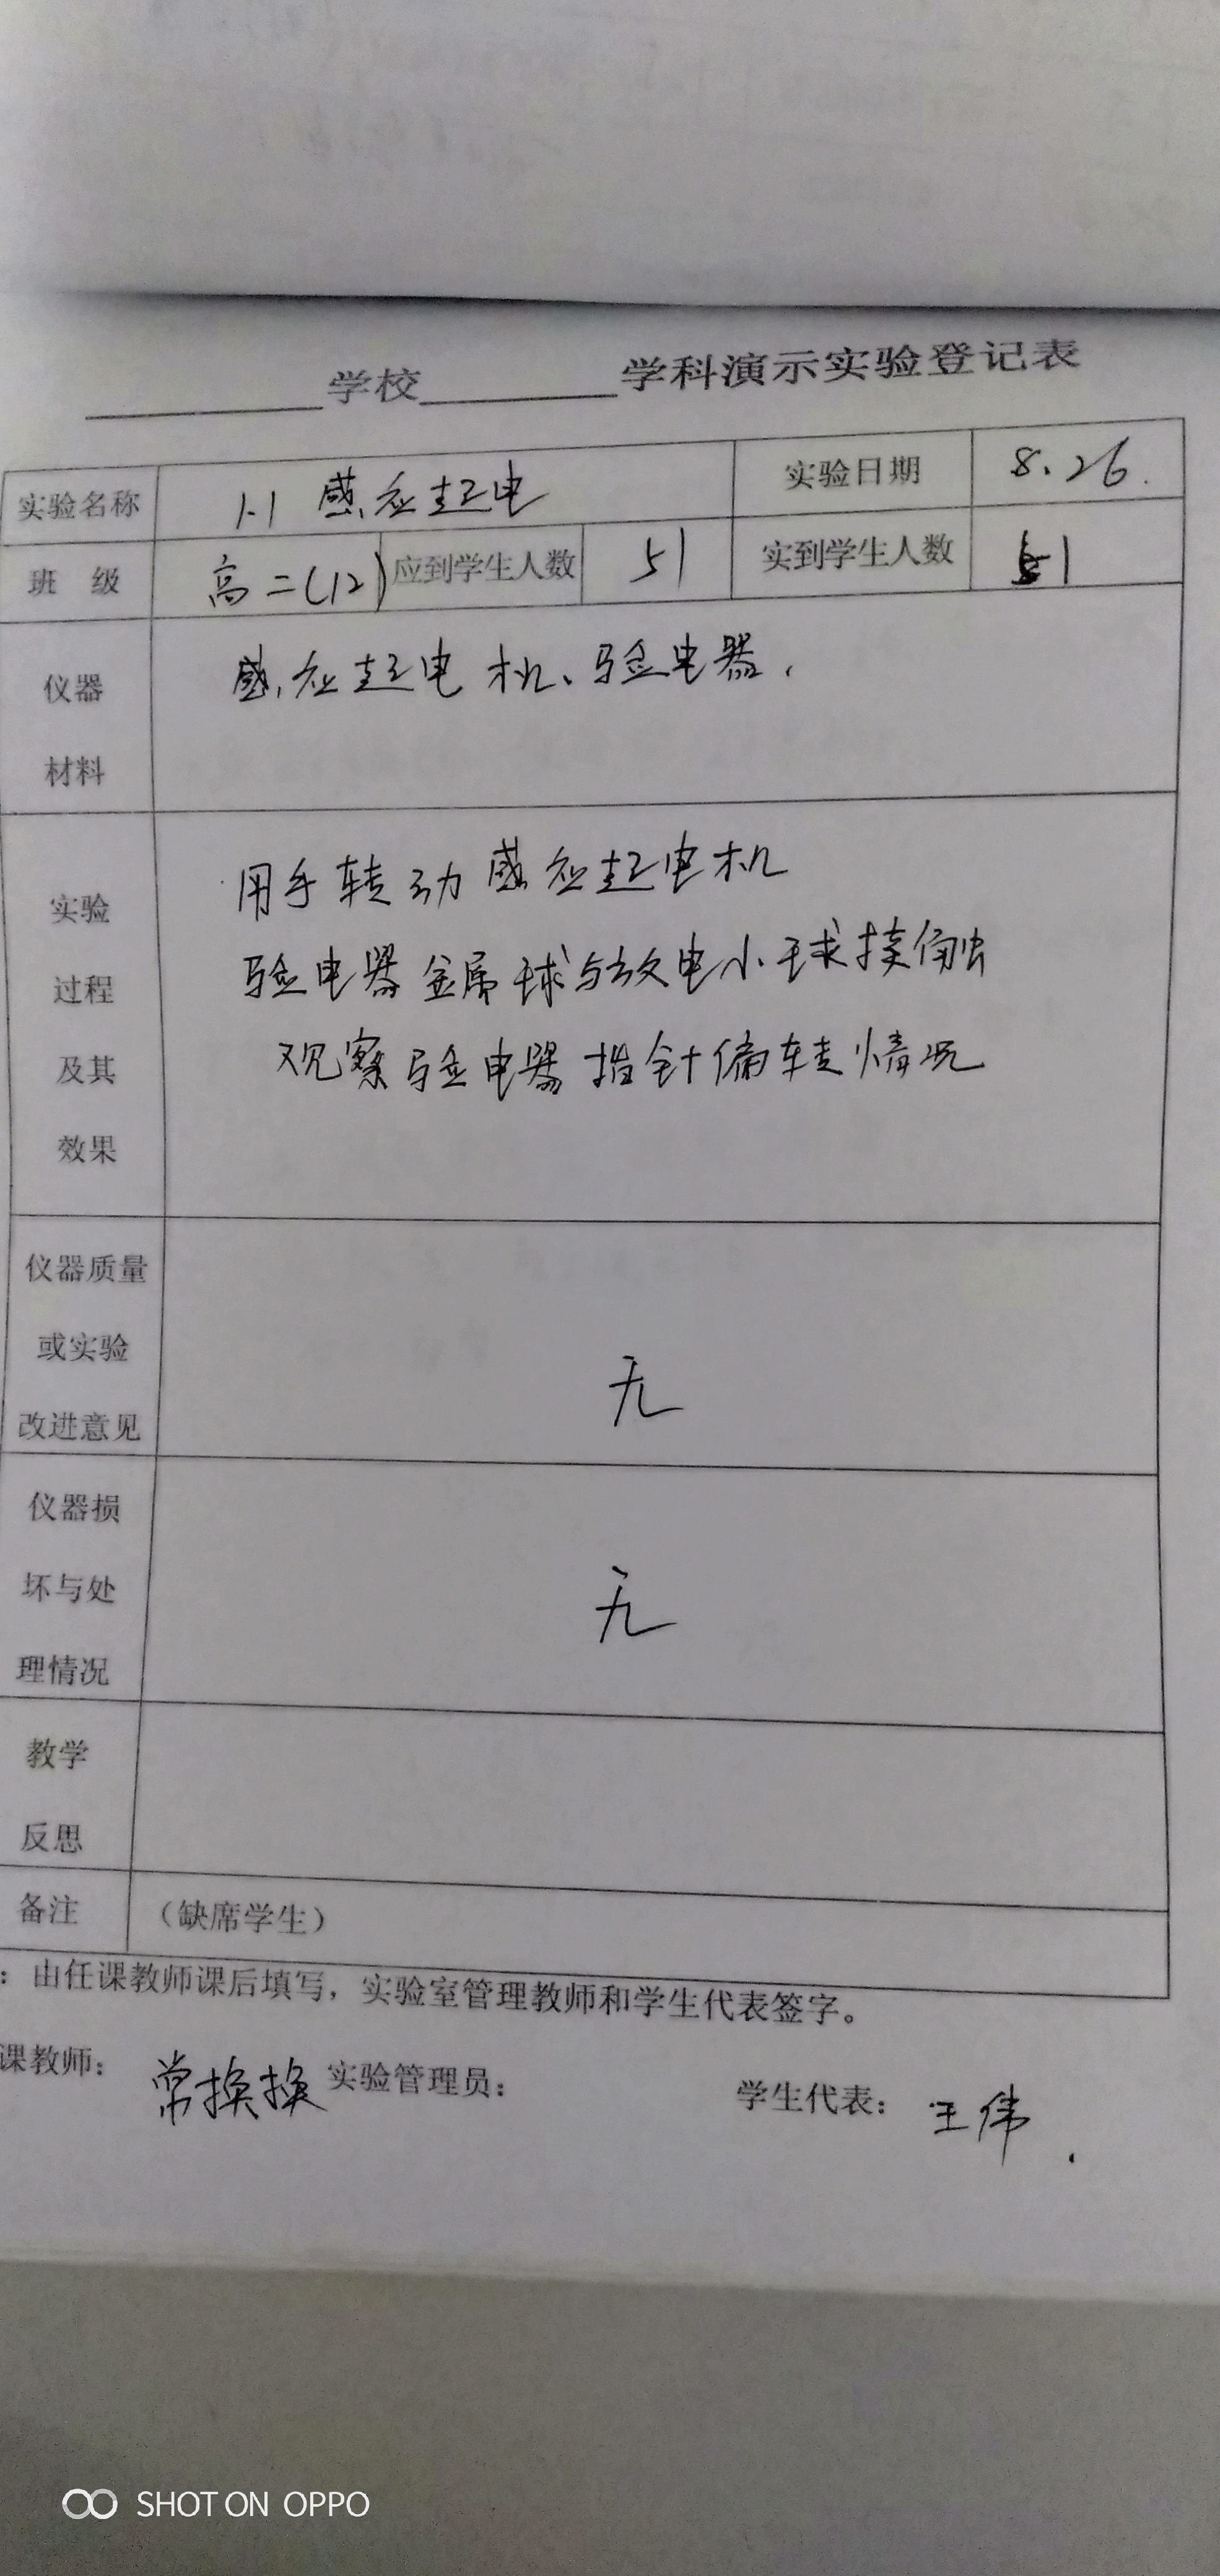 学校 学科演示实验登记表
实验名称 1.1 感应起电 实验日期 8.26.
班 级 高二(12) 应到学生人数 51 实到学生人数 51
仪器
材料
感应起电机、验电器.
实验
过程
及其
效果
用手转动感应起电机
验电器金属球与放电小球接触
观察验电器指针偏转情况
仪器质量
或实验
改进意见
无
仪器损
坏与处
理情况
无
教学
反思
备注 (缺席学生)
：由任课教师课后填写，实验室管理教师和学生代表签字。
课教师： 常换换 实验管理员： 学生代表： 王伟.
SHOT ON OPPO